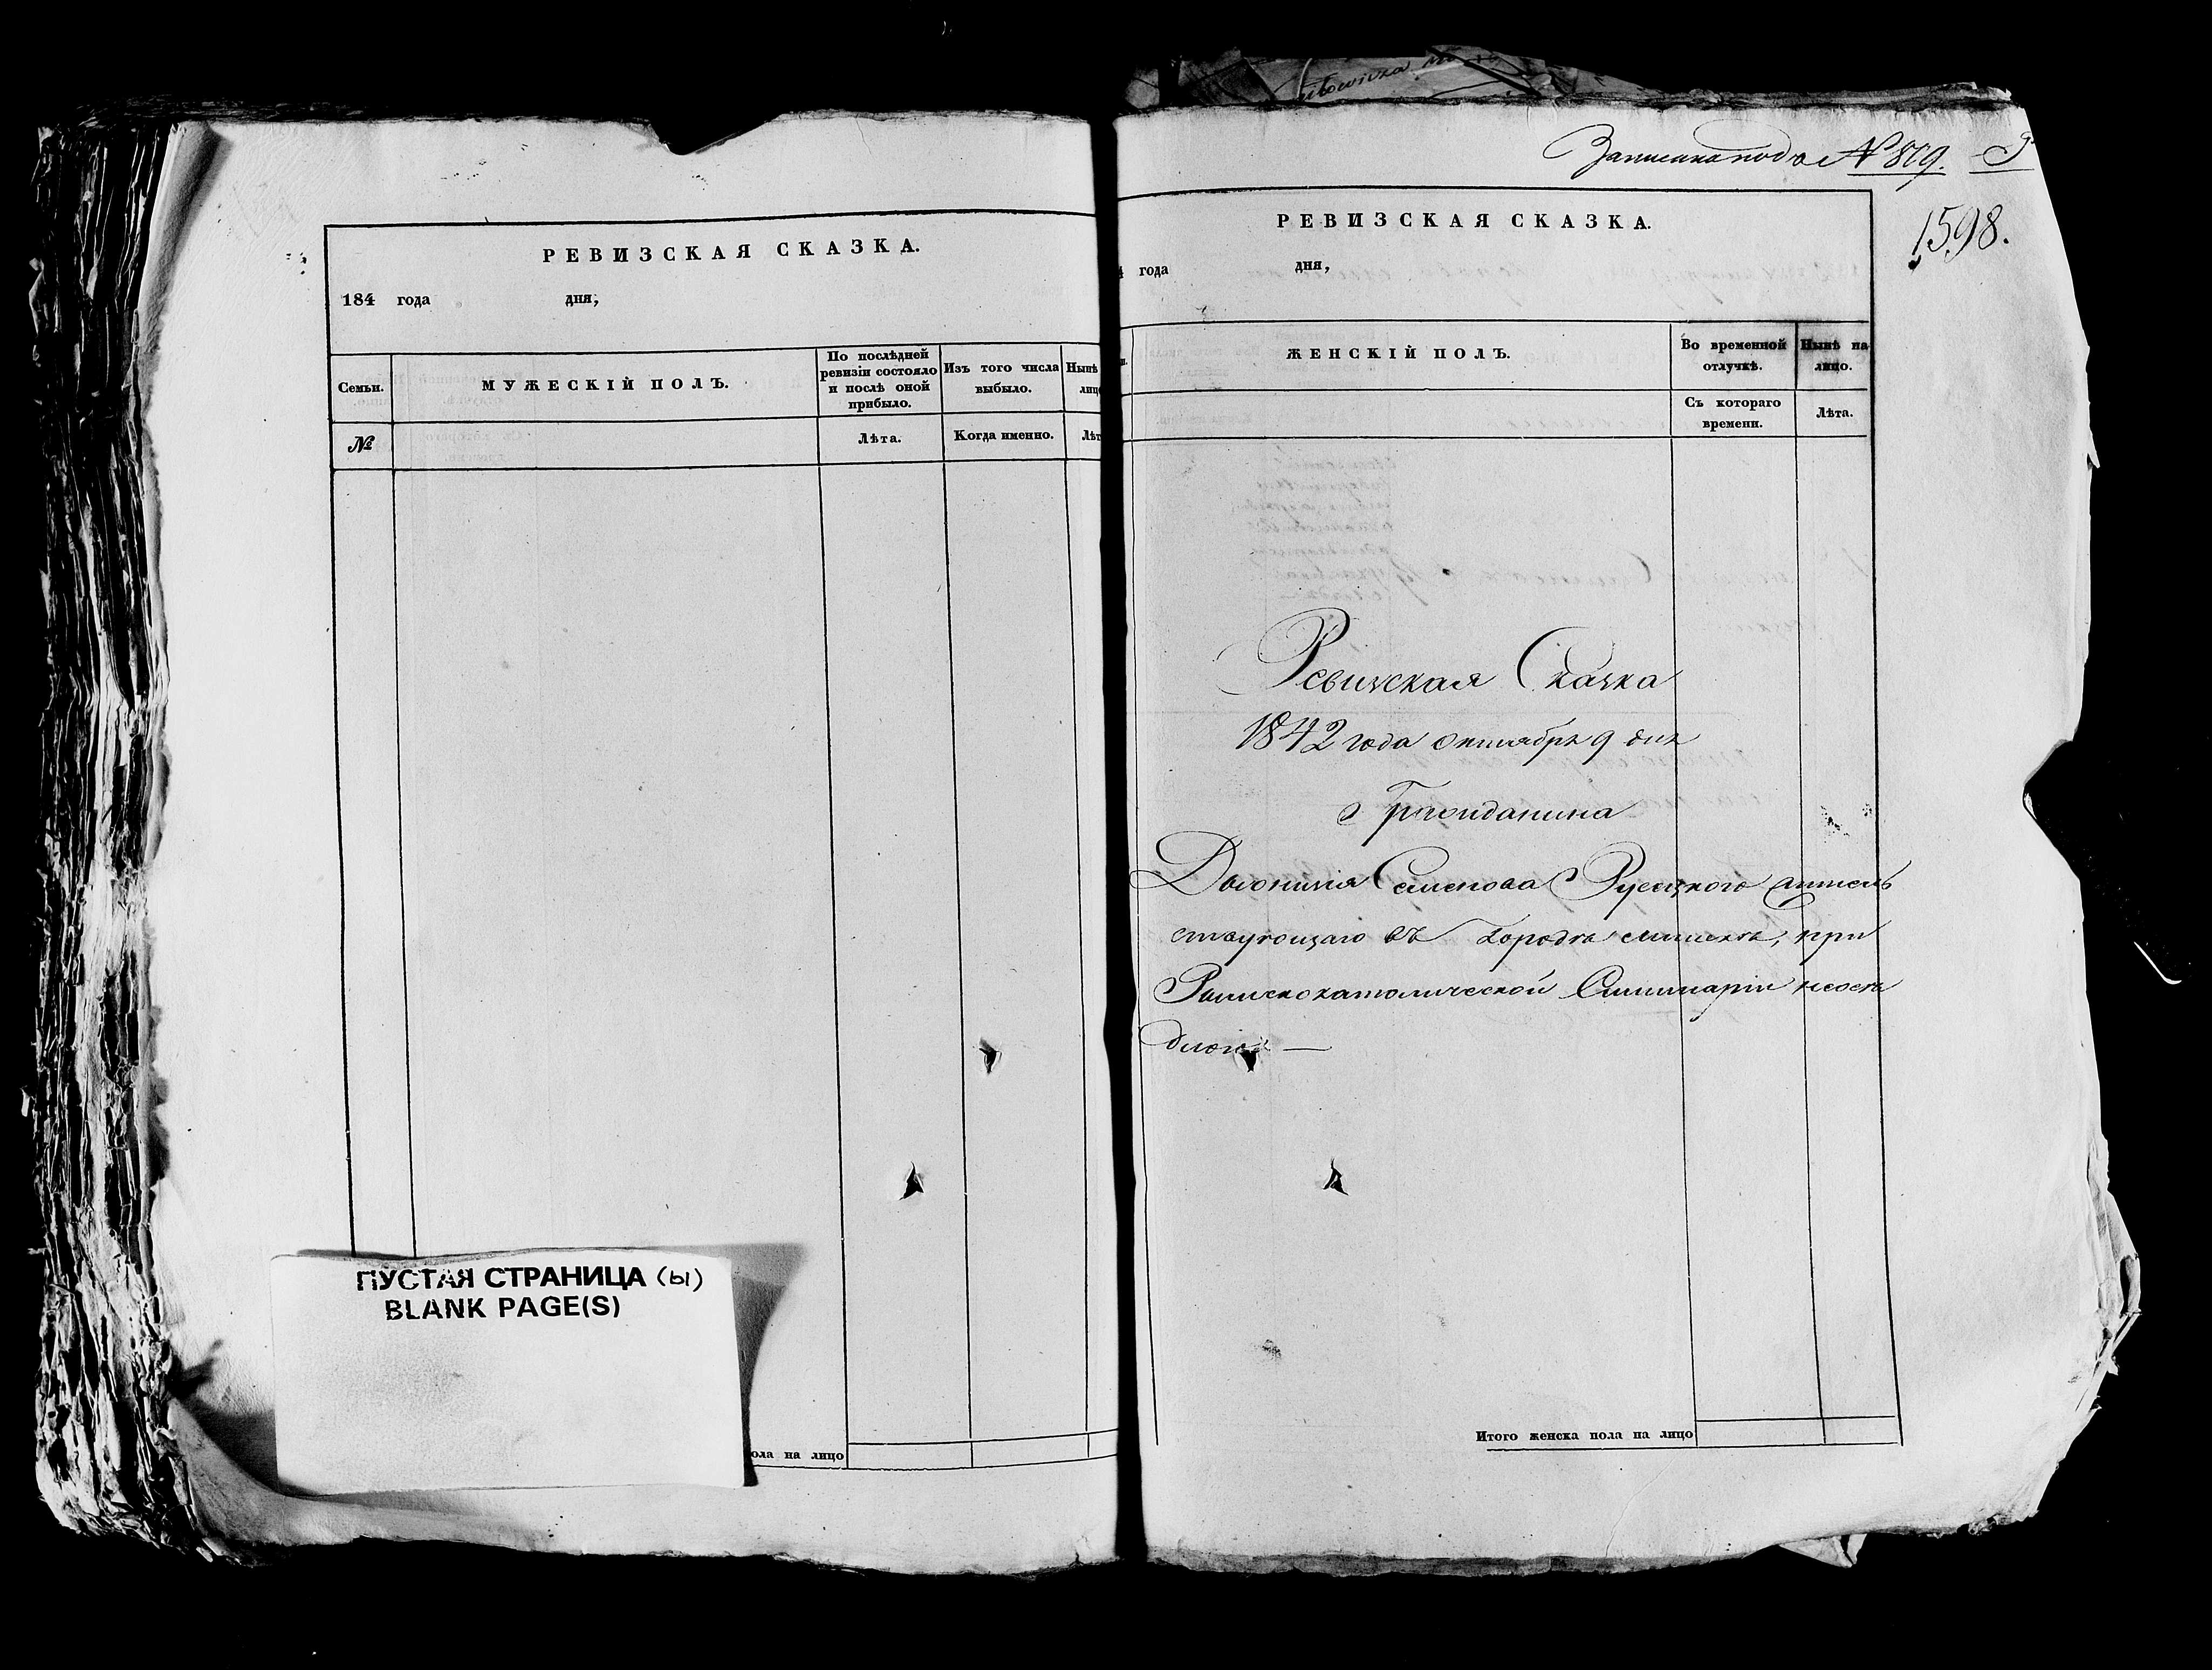 РЕВИЗСКАЯ СКАЗКА.
184 года дня,
Семьи.
МУЖЕСКІЙ ПОЛЪ.
По послѣдней
ревизіи состояло
и послѣ оной
прибыло.
Изъ того числа
выбыло.
Нынѣ
№
Лѣта.
Когда именно.
ПУСТАЯ СТРАНИЦА (ы)
BLANK PAGE(S)
на лицо
Записана подъ № 819.
1598.
РЕВИЗСКАЯ СКАЗКА.
года дня,
ЖЕНСКІЙ ПОЛЪ.
Во временной
отлучкѣ.
Нынѣ на
лицо.
Съ котораго
времени.
Лѣта.
Ревизская Сказка
1842 года октября 9 дня
Гражданина
Семенова
ствующаго въ городѣ Минскѣ, при
Римскокатолической Симинаріи неосѣ
длого —
Итого женска пола на лицо